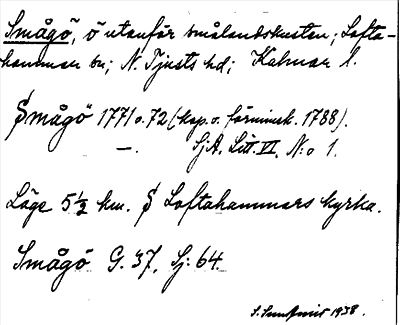 Smågö, ö utanför smålandskusten; Lofta-
hammar sn; N. Tjusts hd; Kalmar l.
Smågö 1771 o. 72 (kop. o. förminsk. 1788).
—. SjA. Litt. VI. N:o 1.
Läge 5½ km. S Loftahammars kyrka.
Smågö G. 37, Sj: 64.
1938.